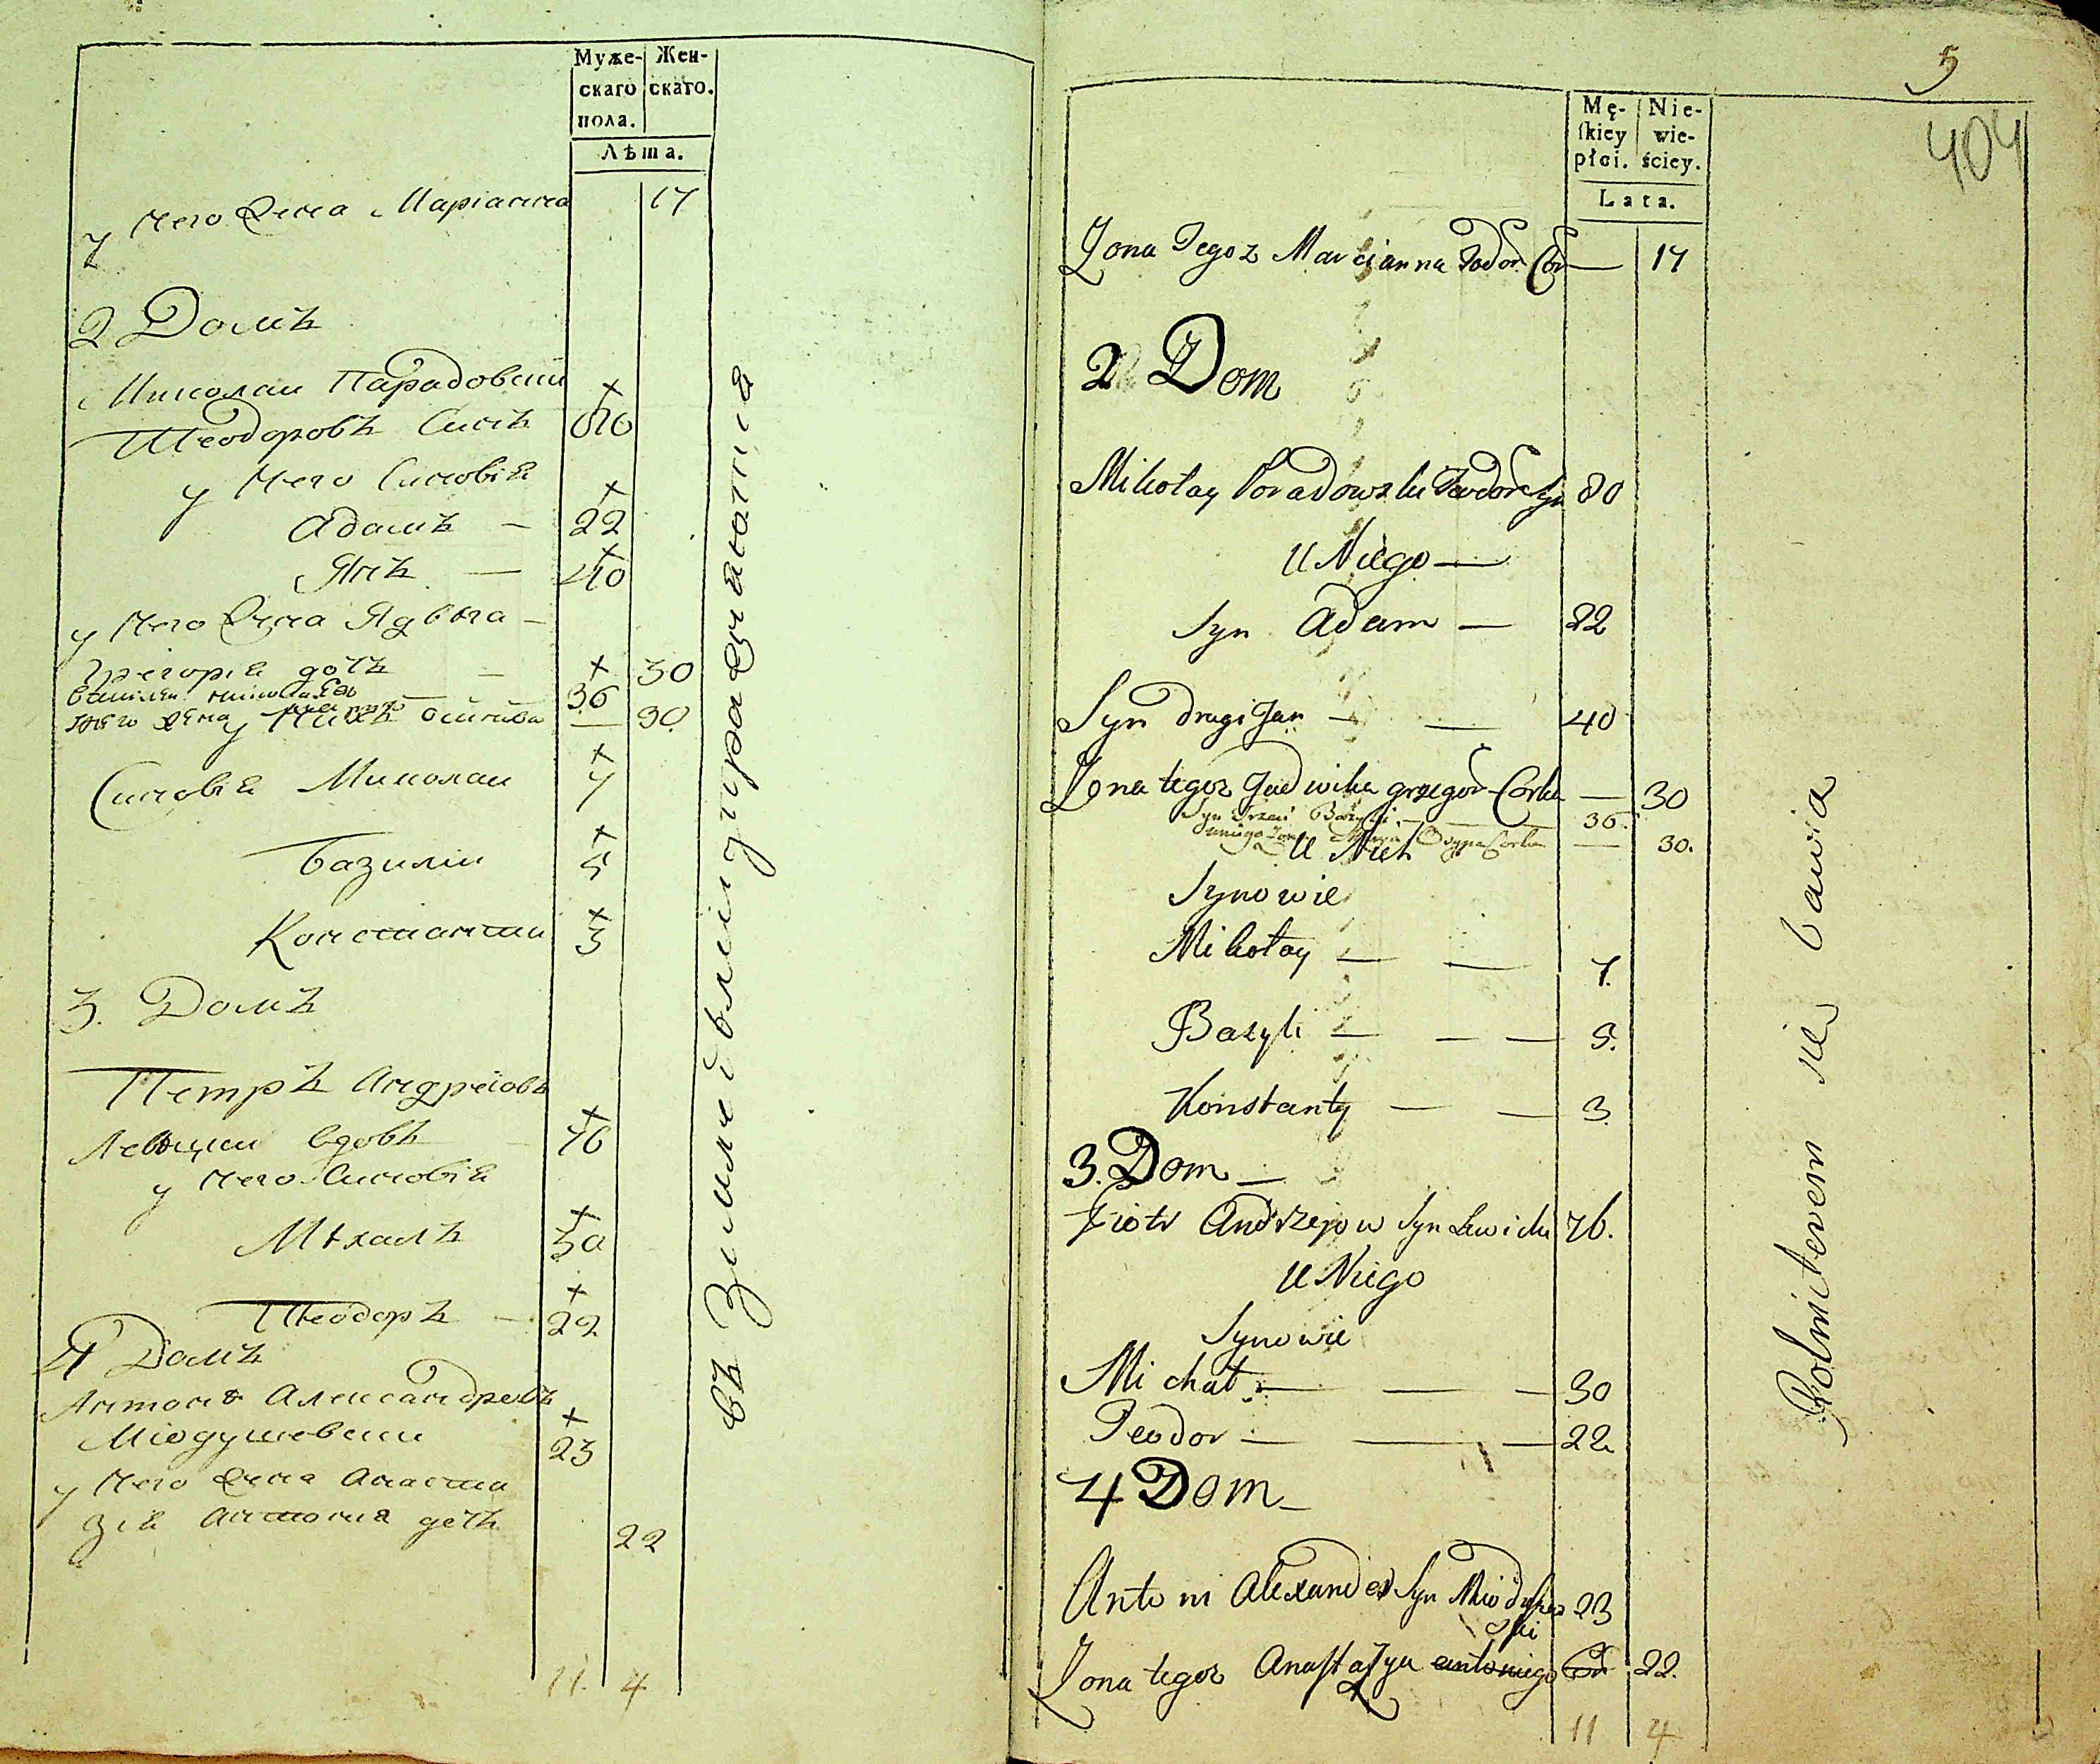 Муже-
скаго
пола.
Жен-
скаго.
Лѣта.
у него Жена Маріанна 17
2 Домъ
Николаи Парадовскии
Теодоровъ Синъ 80
у него Синовія
Адамъ — 22
Янъ — 40
у него Жена Ядвыга —
Грегорія дочъ — 30
36
у него жена 30.
Синовія Миколаи 7
Базиліи 5
Константи 3
3. Домъ
Петръ Андреіовъ
Левицки вдовъ 76
у него Синовія
Михалъ 30
Теодоръ — 22
4 Домъ
Антони Александровъ
Міодушевски 23
у него Жена Анаста
зія Антонія дочъ 22
11. 4
въ Земле
5
404
Mę-
skiey
płci.
Nie-
wie-
ściey.
Lata.
Zona Tegoz Marcianna Todor Cor — 17
2 Dom
Mikołay Poradowski Teodor Syn 80
U Niego —
Syn Adam — 22
Syn drugi Jan — — 40
Zona tegoz Jadwika grzegor Corka — 30
Syn Trzeci Bazyli — 36.
u niego Zona Osypa Corka — 30.
U Nich
Synowie
Mikołay — — 7.
Bazyli — — — 5.
Konstanty — — 3.
3. Dom —
Piotr Andrzejow Syn Lewicki 76.
U Niego
Synowie
Michał — — — 30
Teodor — — — 22
4 Dom —
Antoni Alexander Syn Miodusze 23
ski
Zona tegoz Anastazya antoniego Cor 22.
11 4
Rolnictwem się bawia